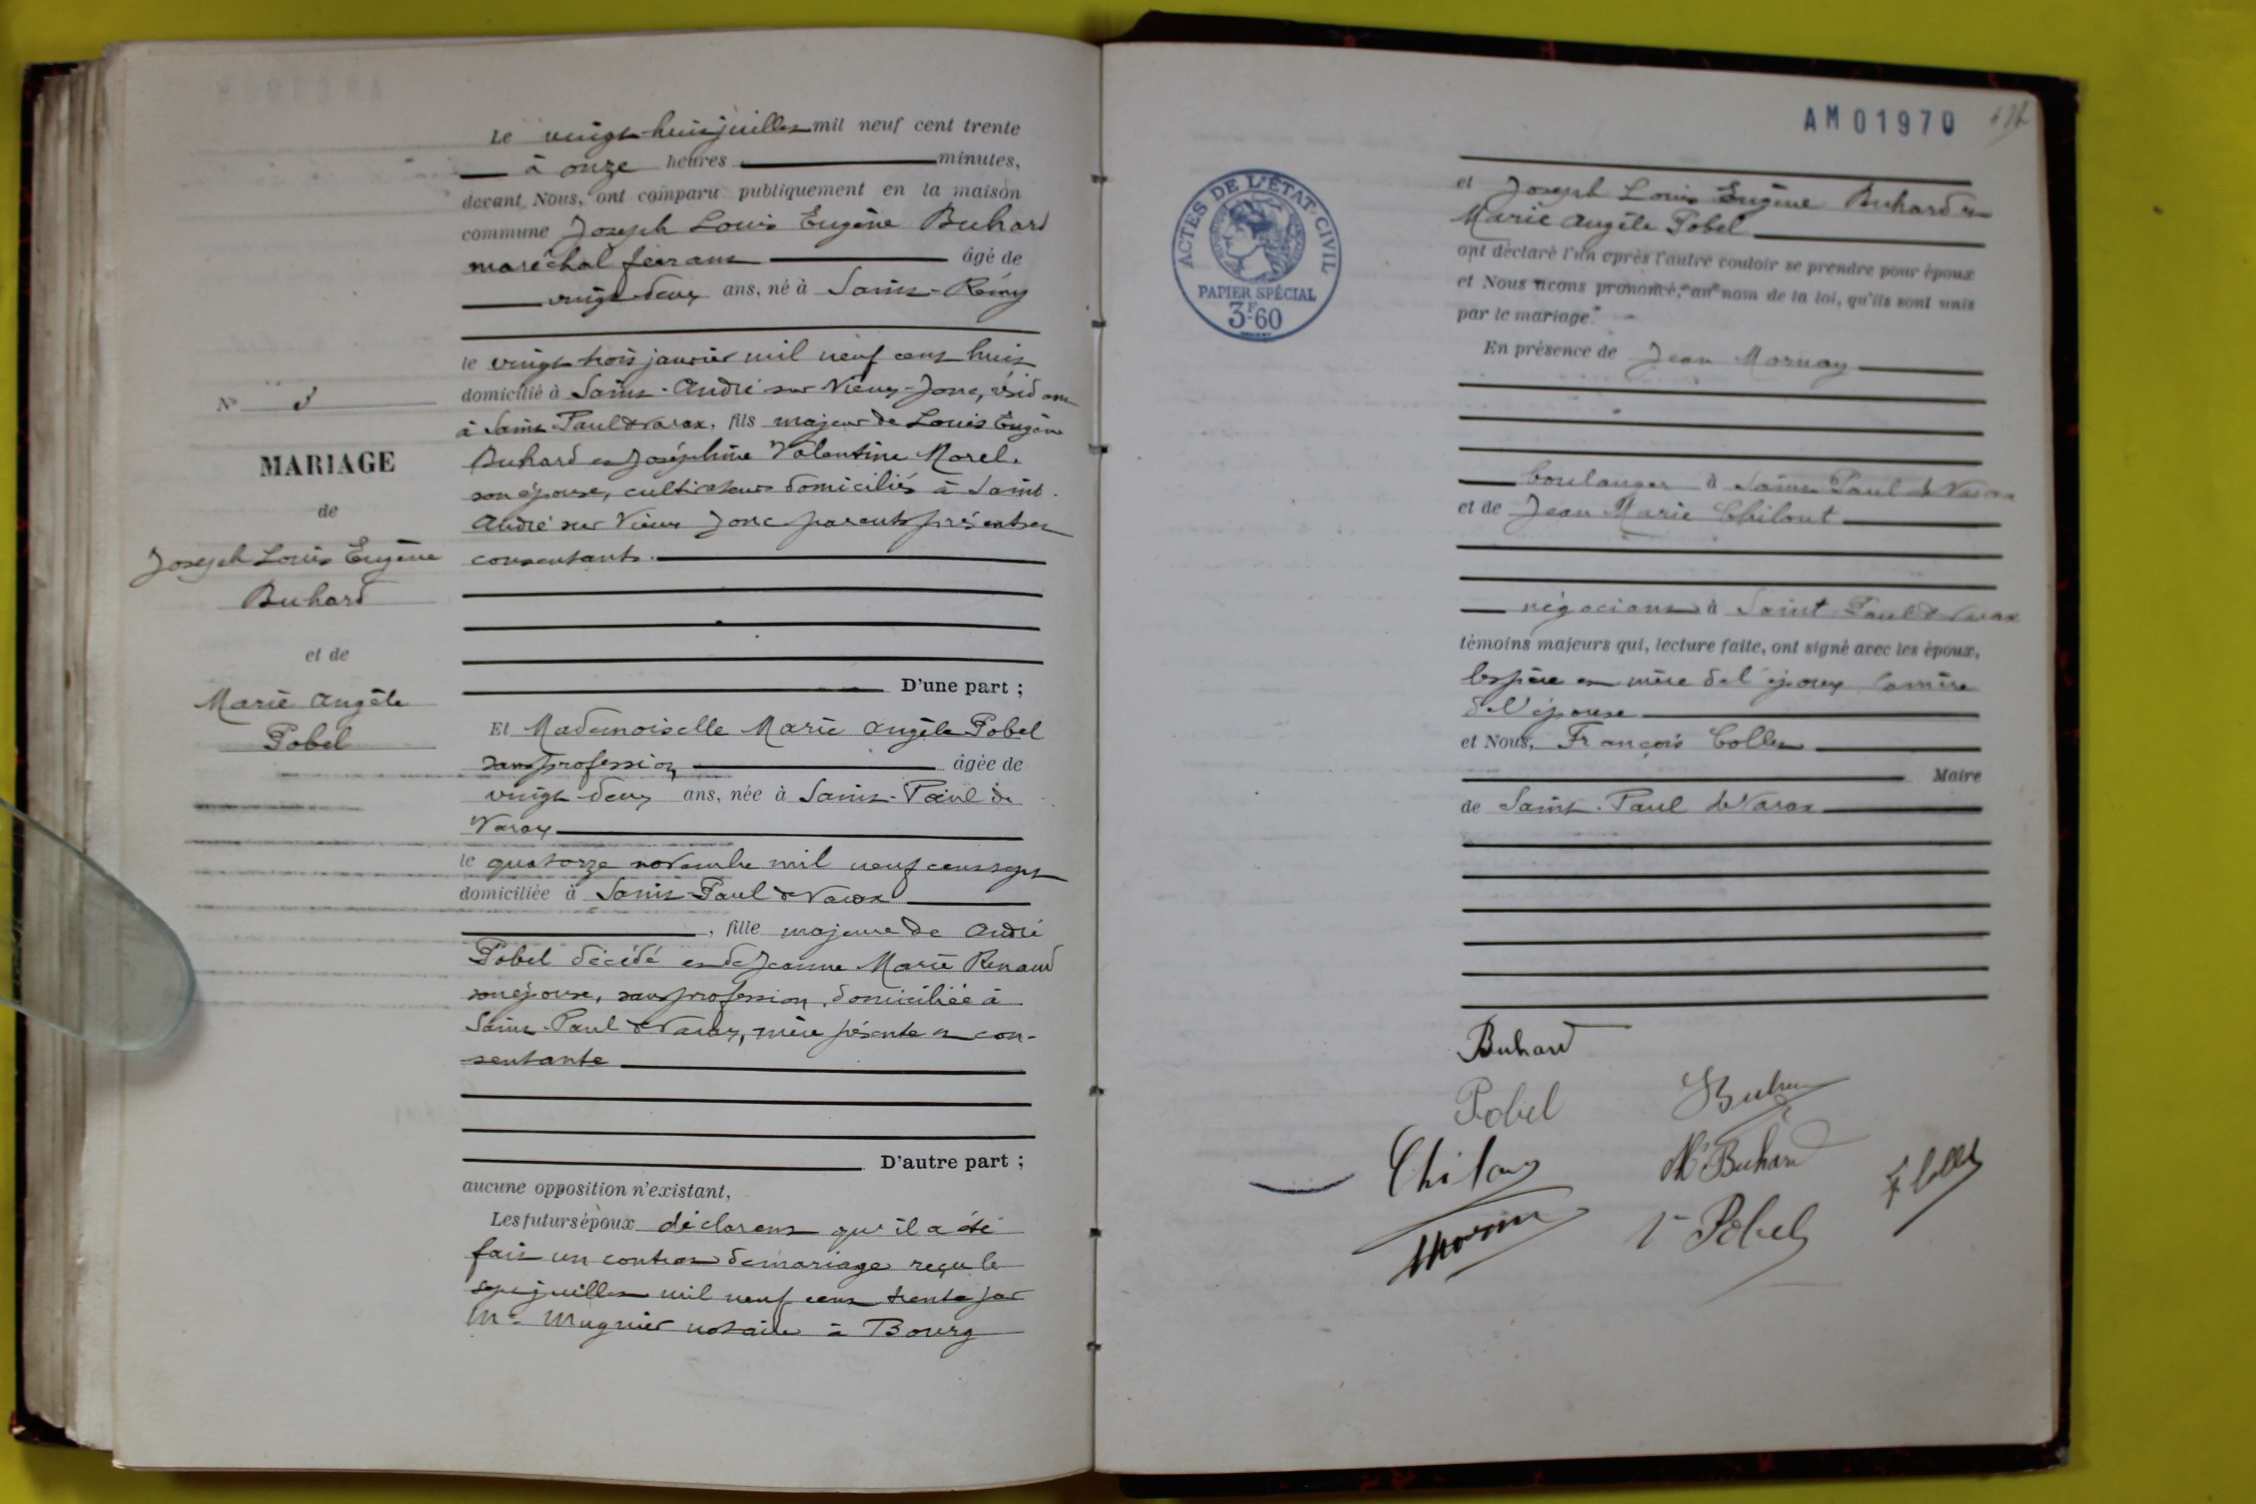 Le vingt-huit juillet mil neuf cent trente
à onze heures minutes,
devant Nous, ont comparu publiquement en la maison
commune Joseph Louis Eugène Buhard
maréchal ferrant âgé de
vingt-deux ans, né à Saint-Rémy
le vingt trois janvier mil neuf cent huit
domicilié à Saint-André sur Vieux-Jonc, résidant
à Saint Paul de Varax, fils majeur de Louis Eugène
Buhard et Joséphine Valentine Morel,
son épouse, cultivateurs domiciliés à Saint-
André sur Vieux Jonc parents présents et
consentants.
D'une part ;
Et Mademoiselle Marie Angèle Pobel
sans profession âgée de
vingt-deux ans, née à Saint-Paul de
Varax
le quatorze novembre mil neuf cent sept
domiciliée à Saint-Paul de Varax
, fille majeure de André
Pobel décédé et de Jeanne Marie Renaud
son épouse, sans profession, domiciliée à
Saint-Paul de Varax, mère présente et con-
sentante
D'autre part ;
aucune opposition n'existant,
Les futurs époux déclarent qu'il a été
fait un contrat de mariage reçu le
sept juillet mil neuf cent trente par
Me Mugnier notaire à Bourg
No 3
MARIAGE
de
Joseph Louis Eugène
Buhard
et de
Marie Angèle
Pobel
AM01970
ACTES DE L'ÉTAT-CIVIL
PAPIER SPÉCIAL
3F60
et Joseph Louis Eugène Buhard et
Marie Angèle Pobel
ont déclaré l'un après l'autre vouloir se prendre pour époux
et Nous avons prononcé, au nom de la loi, qu'ils sont unis
par le mariage.
En présence de Jean Mornay
boulanger à Saint Paul de Varax
et de Jean Marie Chilout
négociant à Saint Paul de Varax
témoins majeurs qui, lecture faite, ont signé avec les époux,
les père et mère de l'époux la mère
de l'épouse
et Nous, François Collet
Maire
de Saint-Paul de Varax
Buhard
Pobel
Buhard
Chilout
M Buhard
F Collet
Pobel